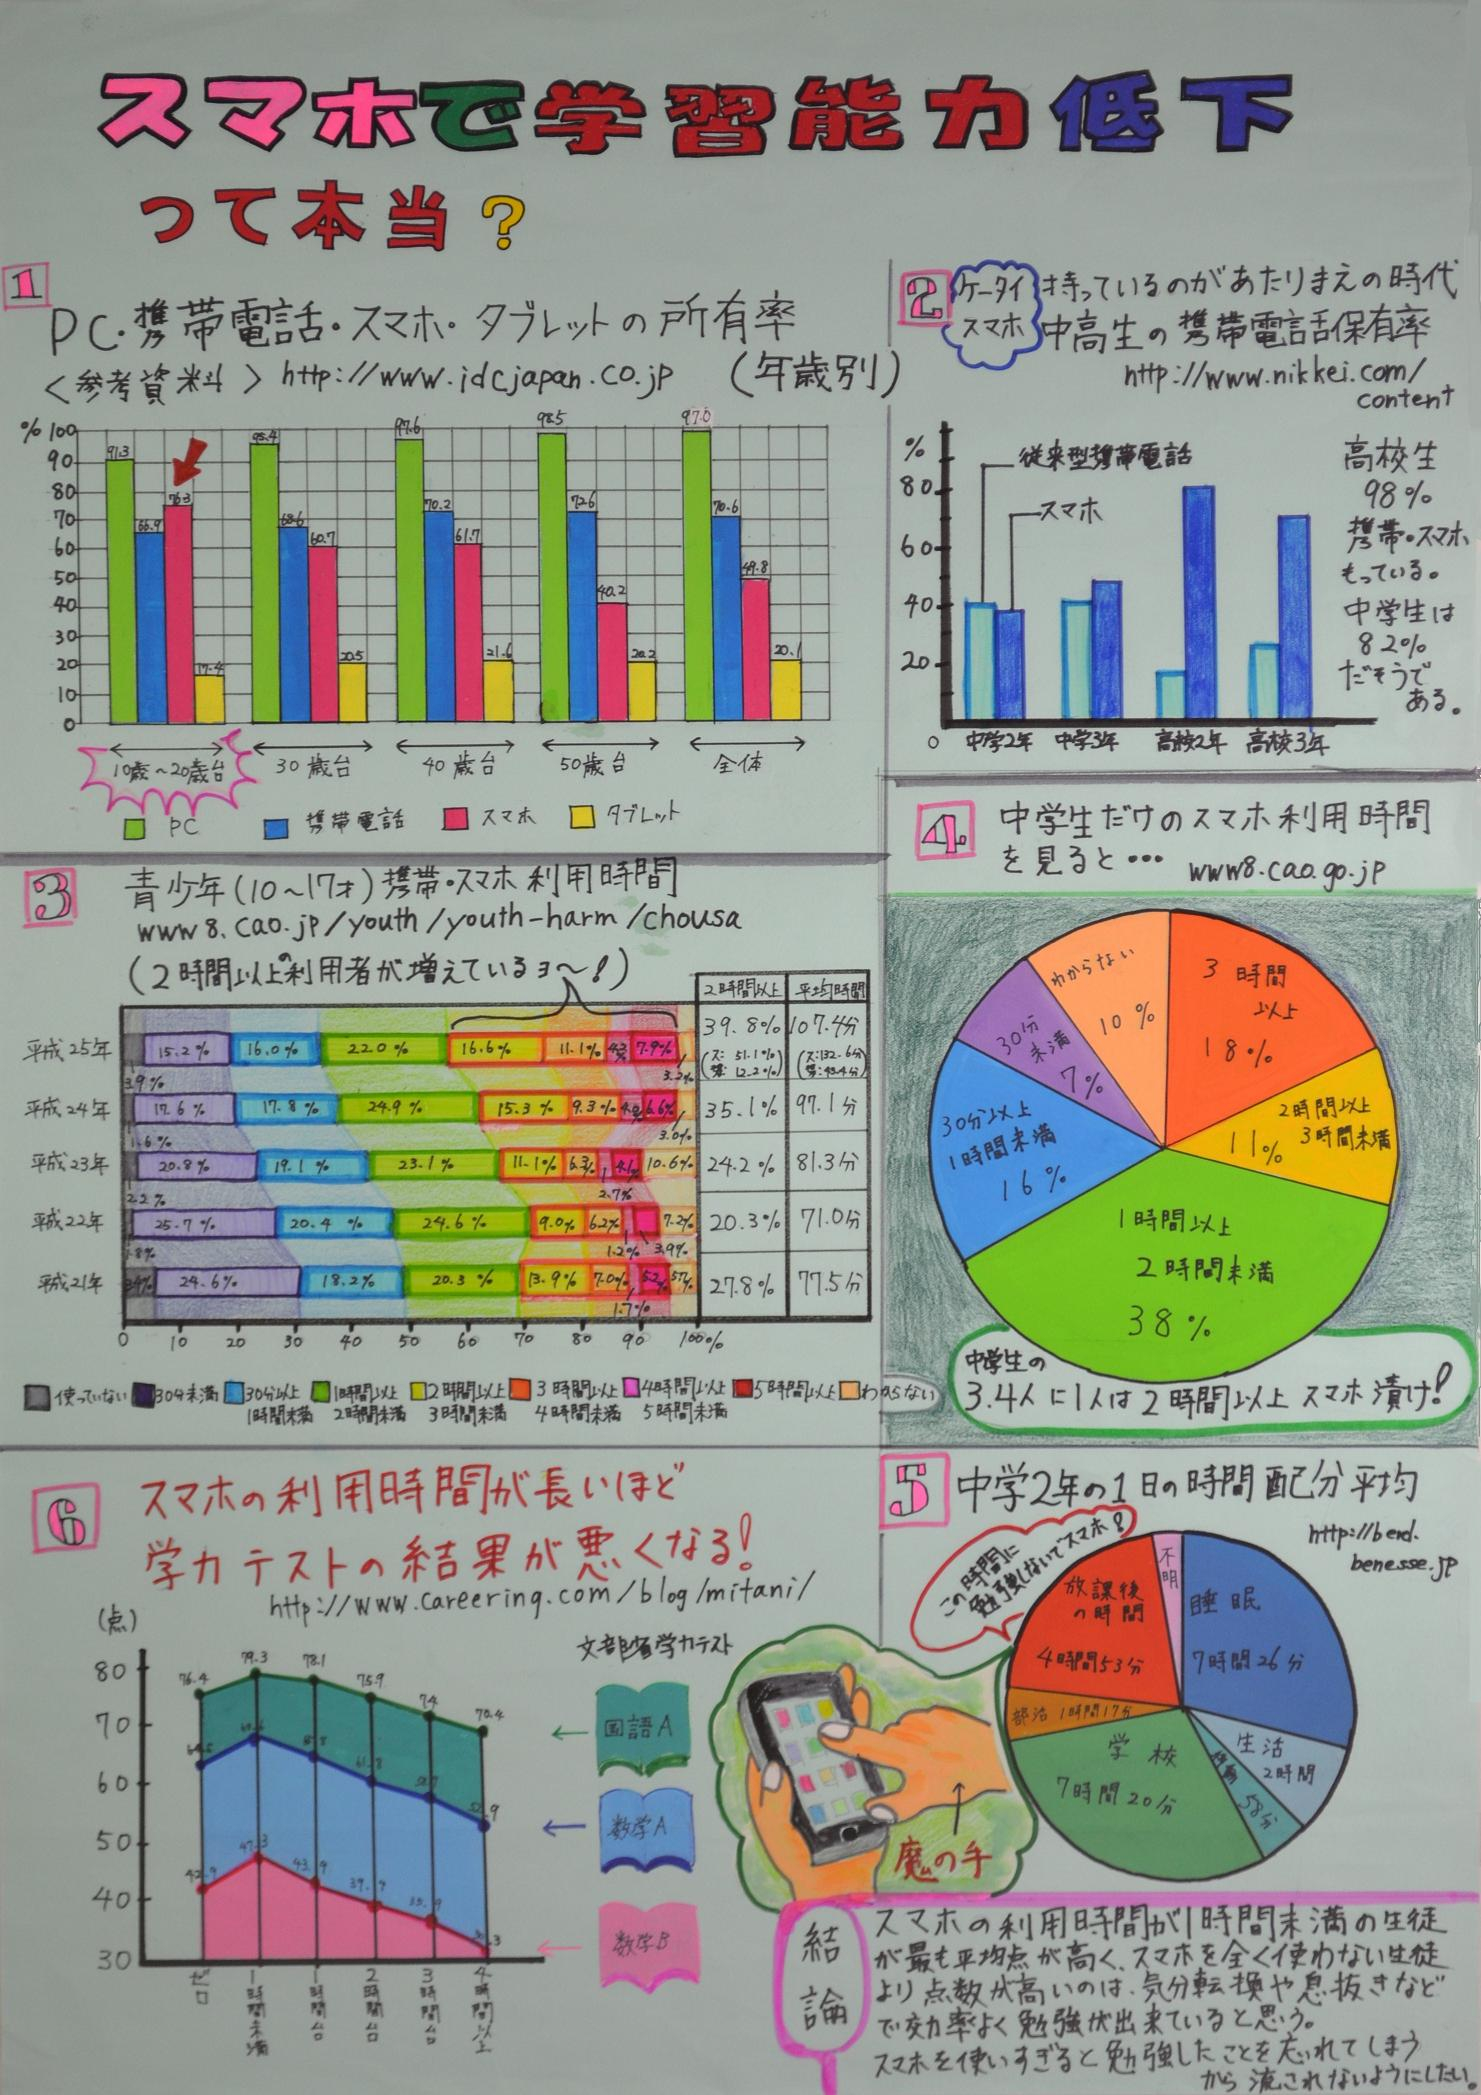 スマホで学習能力低下
って本当?
1
PC・携帯電話・スマホ・タブレットの所有率
<参考資料> http://www.idcjapan.co.jp (年歳別)
% 100
90
80
70
60
50
40
30
20
10
0
91.3 66.9 76.3 17.4
95.4 68.6 60.7 20.5
97.6 70.2 61.7 21.6
98.5 72.6 40.2 20.2
97.0 70.6 49.8 20.1
10歳~20歳台 30歳台 40歳台 50歳台 全体
PC 携帯電話 スマホ タブレット
2
ケータイ
スマホ
持っているのがあたりまえの時代
中高生の携帯電話保有率
http://www.nikkei.com/
content
%
80
60
40
20
0
従来型携帯電話
スマホ
中学2年 中学3年 高校2年 高校3年
高校生
98%
携帯・スマホ
もっている。
中学生は
82%
だそうで
ある。
3
青少年(10~17才)携帯・スマホ利用時間
www8.cao.jp/youth/youth-harm/chousa
(2時間以上の利用者が増えているヨ~!)
2時間以上 平均時間
平成25年 15.2% 16.0% 22.0% 16.6% 11.1% 4.3% 7.9% 39.8% 107.4分
(ス:51.1%) (ス:132.6分)
(携:12.2%) (携:43.4分)
3.9% 3.2%
平成24年 17.6% 17.8% 24.9% 15.3% 9.3% 6.6% 35.1% 97.1分
1.6% 3.0%
平成23年 20.8% 19.1% 23.1% 11.1% 6.3% 4.1% 10.6% 24.2% 81.3分
2.2% 2.7%
平成22年 25.7% 20.4% 24.6% 9.0% 6.2% 7.2% 20.3% 71.0分
1.8% 1.2% 3.9%
平成21年 3.4% 24.6% 18.2% 20.3% 13.9% 7.0% 5.2% 5.7% 27.8% 77.5分
1.7%
0 10 20 30 40 50 60 70 80 90 100%
使っていない 30分未満 30分以上 1時間以上 2時間以上 3時間以上 4時間以上 5時間以上 わからない
1時間未満 2時間未満 3時間未満 4時間未満 5時間未満
4
中学生だけのスマホ利用時間
を見ると… www8.cao.go.jp
3時間
以上
18%
2時間以上
3時間未満
11%
1時間以上
2時間未満
38%
30分以上
1時間未満
16%
30分
未満
7%
わからない
10%
中学生の
3.4人に1人は2時間以上スマホ漬け!
5
中学2年の1日の時間配分平均
http://berd.
benesse.jp
この時間に
勉強しないでスマホ!
睡眠
7時間26分
生活
2時間
58分
学校
7時間20分
部活 1時間17分
放課後
の時間
4時間53分
不明
魔の手
6
スマホの利用時間が長いほど
学力テストの結果が悪くなる!
http://www.careering.com/blog/mitani/
(点)
80
70
60
50
40
30
76.4 79.3 78.1 75.9 74 70.4
61.8
42.9 47.3 43.9 39.9
ゼロ
1時間未満
1時間台
2時間台
3時間台
4時間以上
文部省学力テスト
国語A
数学A
数学B
結論
スマホの利用時間が1時間未満の生徒
が最も平均点が高く、スマホを全く使わない生徒
より点数が高いのは、気分転換や息抜きなど
で効率よく勉強が出来ていると思う。
スマホを使いすぎると勉強したことを忘れてしまう
から流されないようにしたい。